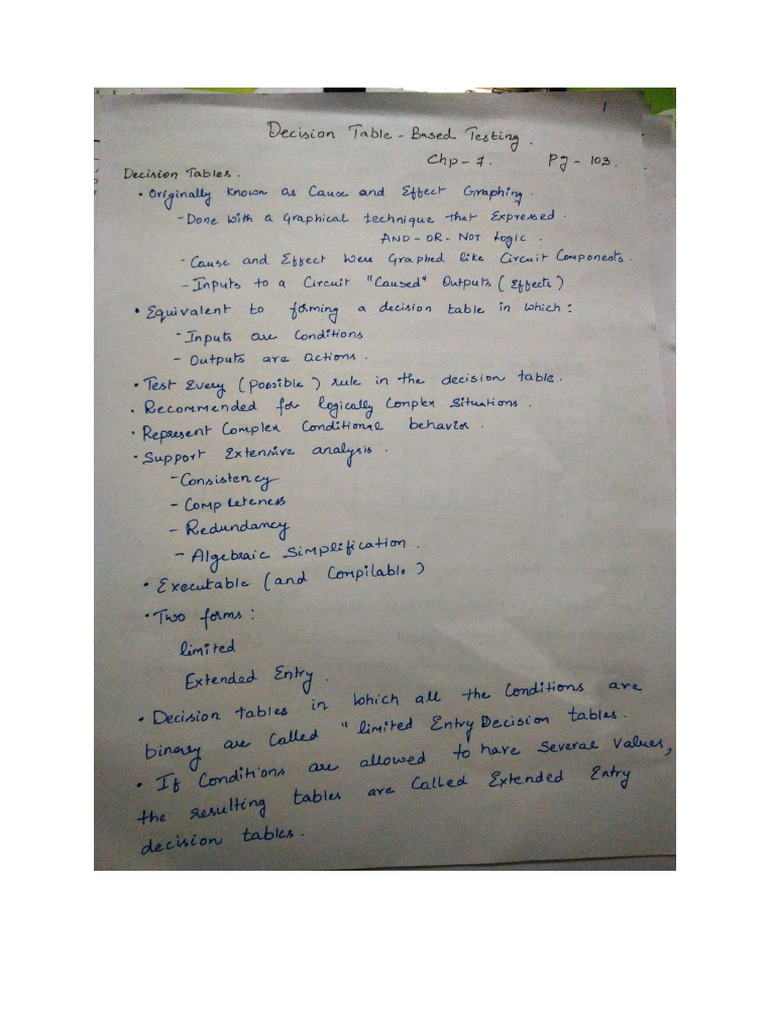 1
Decision Table - Based Testing.
Chp - 7. Pg - 103.
Decision Tables.
• Originally known as Cause and Effect Graphing.
- Done with a Graphical technique that Expressed.
AND - OR - NOT Logic.
- Cause and Effect Were Graphed like Circuit Components.
- Inputs to a Circuit "Caused" Outputs (Effects).
• Equivalent to forming a decision table in which:
- Inputs are Conditions
- Outputs are actions.
• Test Every (Possible) rule in the decision table.
• Recommended for logically Conplex Situations.
• Represent Complex Conditional behavior.
• Support Extensive analysis.
- Consistency
- Completeness
- Redundancy
- Algebraic Simplification.
• Executable (and Compilable)
• Two forms:
limited
Extended Entry.
• Decision tables in which all the Conditions are
binary are Called "limited Entry Decision tables.
• If Conditions are allowed to have Several Values,
the resulting tables are Called Extended Entry
decision tables.